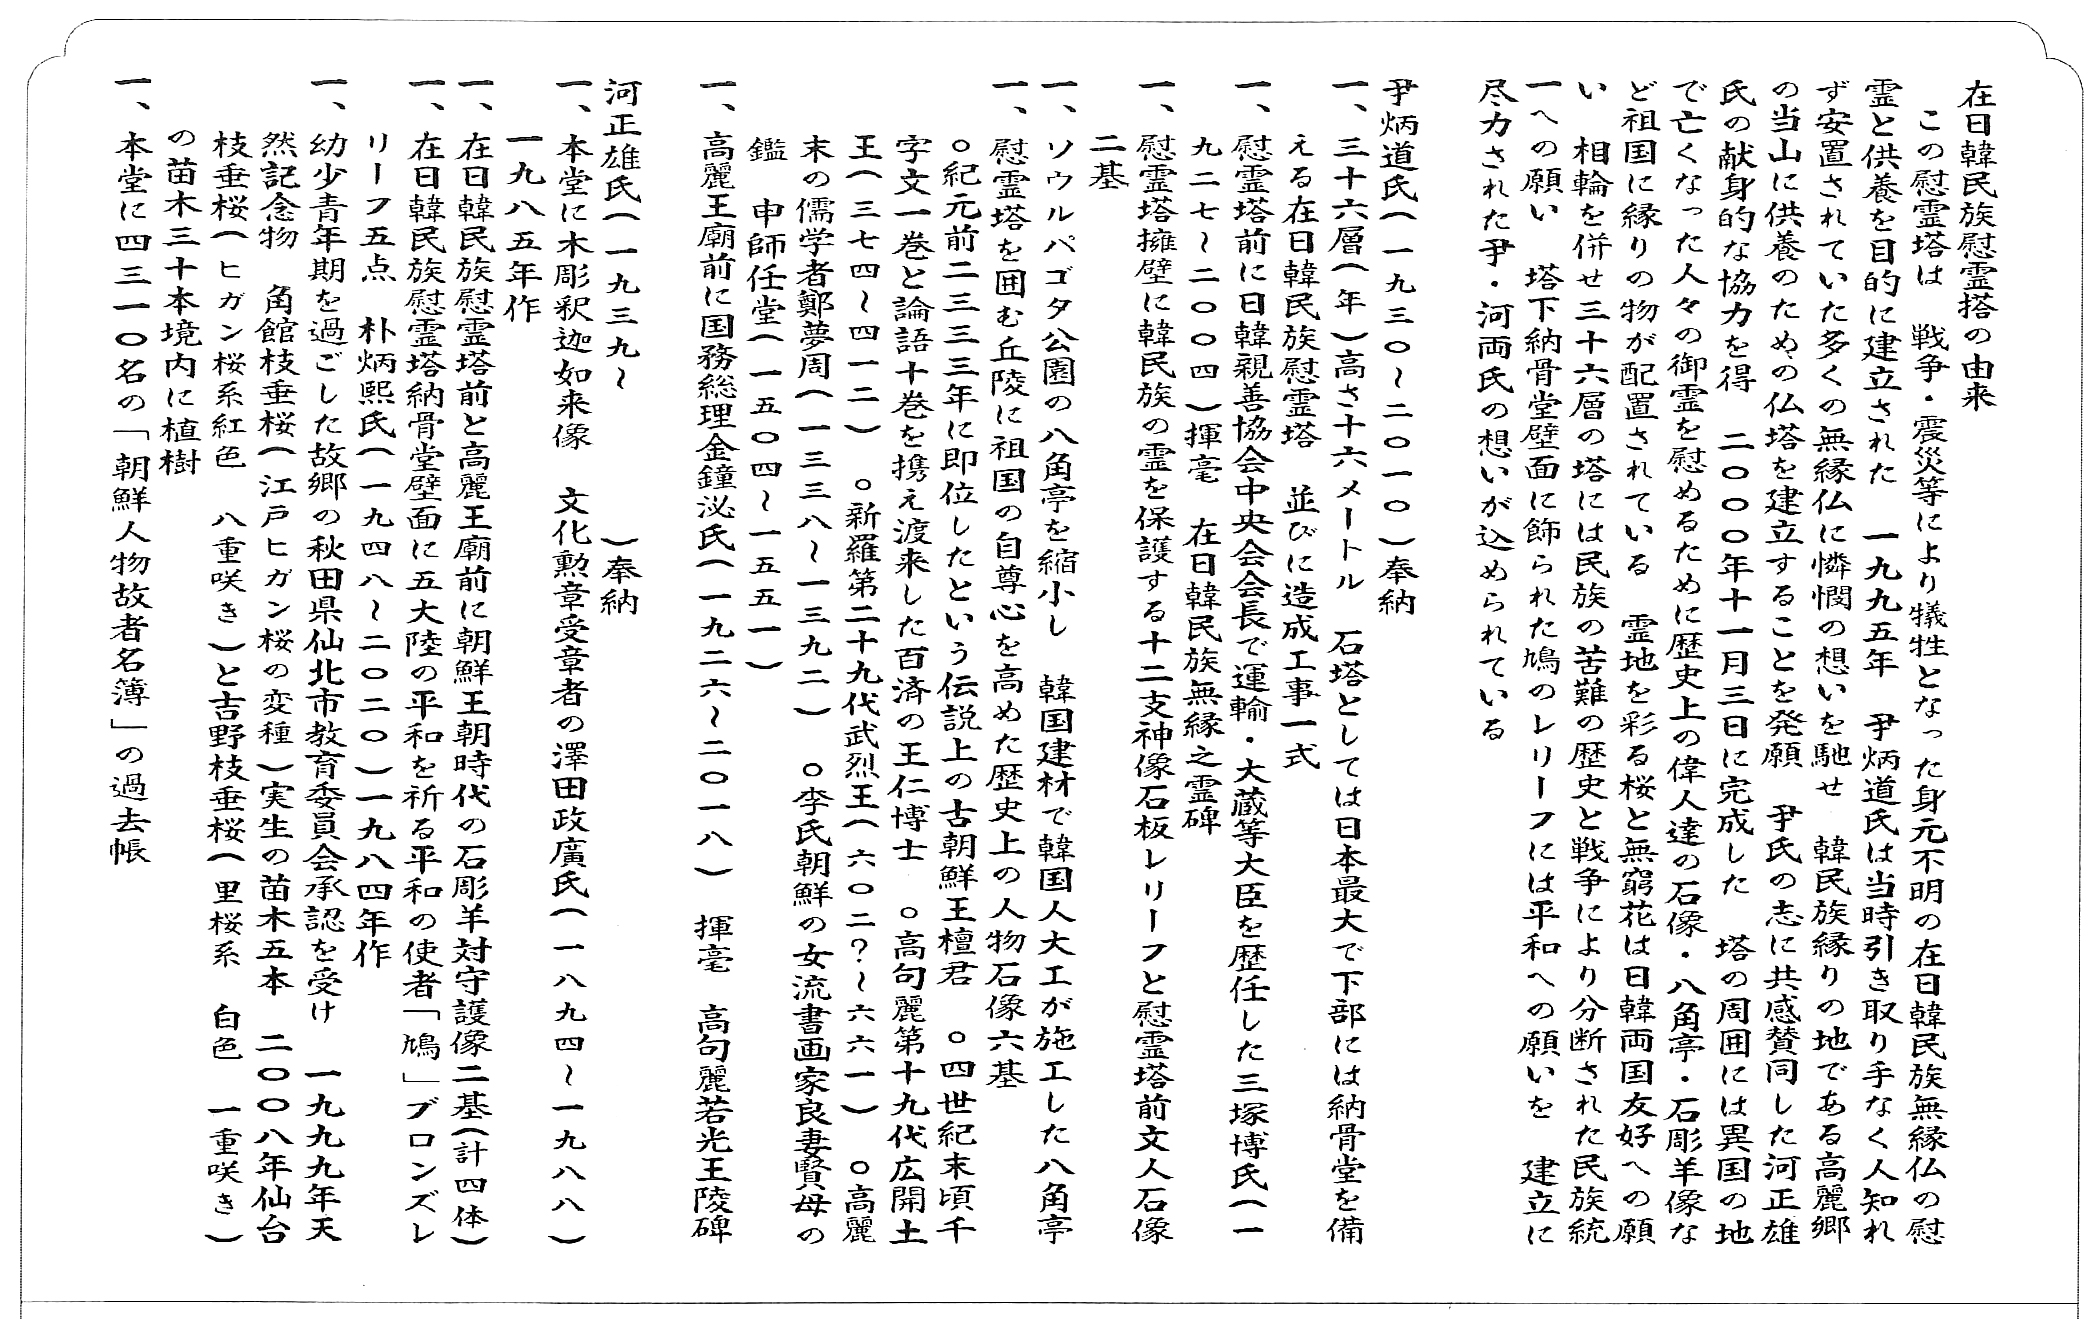 在日韓民族慰霊塔の由来
この慰霊塔は　戦争・震災等により犠牲となった身元不明の在日韓民族無縁仏の慰
霊と供養を目的に建立された　一九九五年　尹炳道氏は当時引き取り手なく人知れ
ず安置されていた多くの無縁仏に憐憫の想いを馳せ　韓民族縁りの地である高麗郷
の当山に供養のための仏塔を建立することを発願　尹氏の志に共感賛同した河正雄
氏の献身的な協力を得　二〇〇〇年十一月三日に完成した　塔の周囲には異国の地
で亡くなった人々の御霊を慰めるために歴史上の偉人達の石像・八角亭・石彫羊像な
ど祖国に縁りの物が配置されている　霊地を彩る桜と無窮花は日韓両国友好への願
い　相輪を併せ三十六層の塔には民族の苦難の歴史と戦争により分断された民族統
一への願い　塔下納骨堂壁面に飾られた鳩のレリーフには平和への願いを　建立に
尽力された尹・河両氏の想いが込められている
尹炳道氏（一九三〇～二〇一〇）奉納
一、三十六層（年）高さ十六メートル　石塔としては日本最大で下部には納骨堂を備
える在日韓民族慰霊塔　並びに造成工事一式
一、慰霊塔前に日韓親善協会中央会会長で運輸・大蔵等大臣を歴任した三塚博氏（一
九二七～二〇〇四）揮毫　在日韓民族無縁之霊碑
一、慰霊塔擁壁に韓民族の霊を保護する十二支神像石板レリーフと慰霊塔前文人石像
二基
一、ソウルパゴタ公園の八角亭を縮小し　韓国建材で韓国人大工が施工した八角亭
一、慰霊塔を囲む丘陵に祖国の自尊心を高めた歴史上の人物石像六基
○紀元前二三三三年に即位したという伝説上の古朝鮮王檀君　○四世紀末頃千
字文一巻と論語十巻を携え渡来した百済の王仁博士　○高句麗第十九代広開土
王（三七四～四一二）　○新羅第二十九代武烈王（六〇二？～六六一）　○高麗
末の儒学者鄭夢周（一三三八～一三九二）　○李氏朝鮮の女流書画家良妻賢母の
鑑　申師任堂（一五〇四～一五五一）
一、高麗王廟前に国務総理金鐘泌氏（一九二六～二〇一八）　揮毫　高句麗若光王陵碑
河正雄氏（一九三九～　　　　）奉納
一、本堂に木彫釈迦如来像　文化勲章受章者の澤田政廣氏（一八九四～一九八八）
一九八五年作
一、在日韓民族慰霊塔前と高麗王廟前に朝鮮王朝時代の石彫羊対守護像二基（計四体）
一、在日韓民族慰霊塔納骨堂壁面に五大陸の平和を祈る平和の使者「鳩」ブロンズレ
リーフ五点　朴炳熙氏（一九四八～二〇二〇）一九八四年作
一、幼少青年期を過ごした故郷の秋田県仙北市教育委員会承認を受け　一九九九年天
然記念物　角館枝垂桜（江戸ヒガン桜の変種）実生の苗木五本　二〇〇八年仙台
枝垂桜（ヒガン桜系紅色　八重咲き）と吉野枝垂桜（里桜系　白色　一重咲き）
の苗木三十本境内に植樹
一、本堂に四三一〇名の「朝鮮人物故者名簿」の過去帳